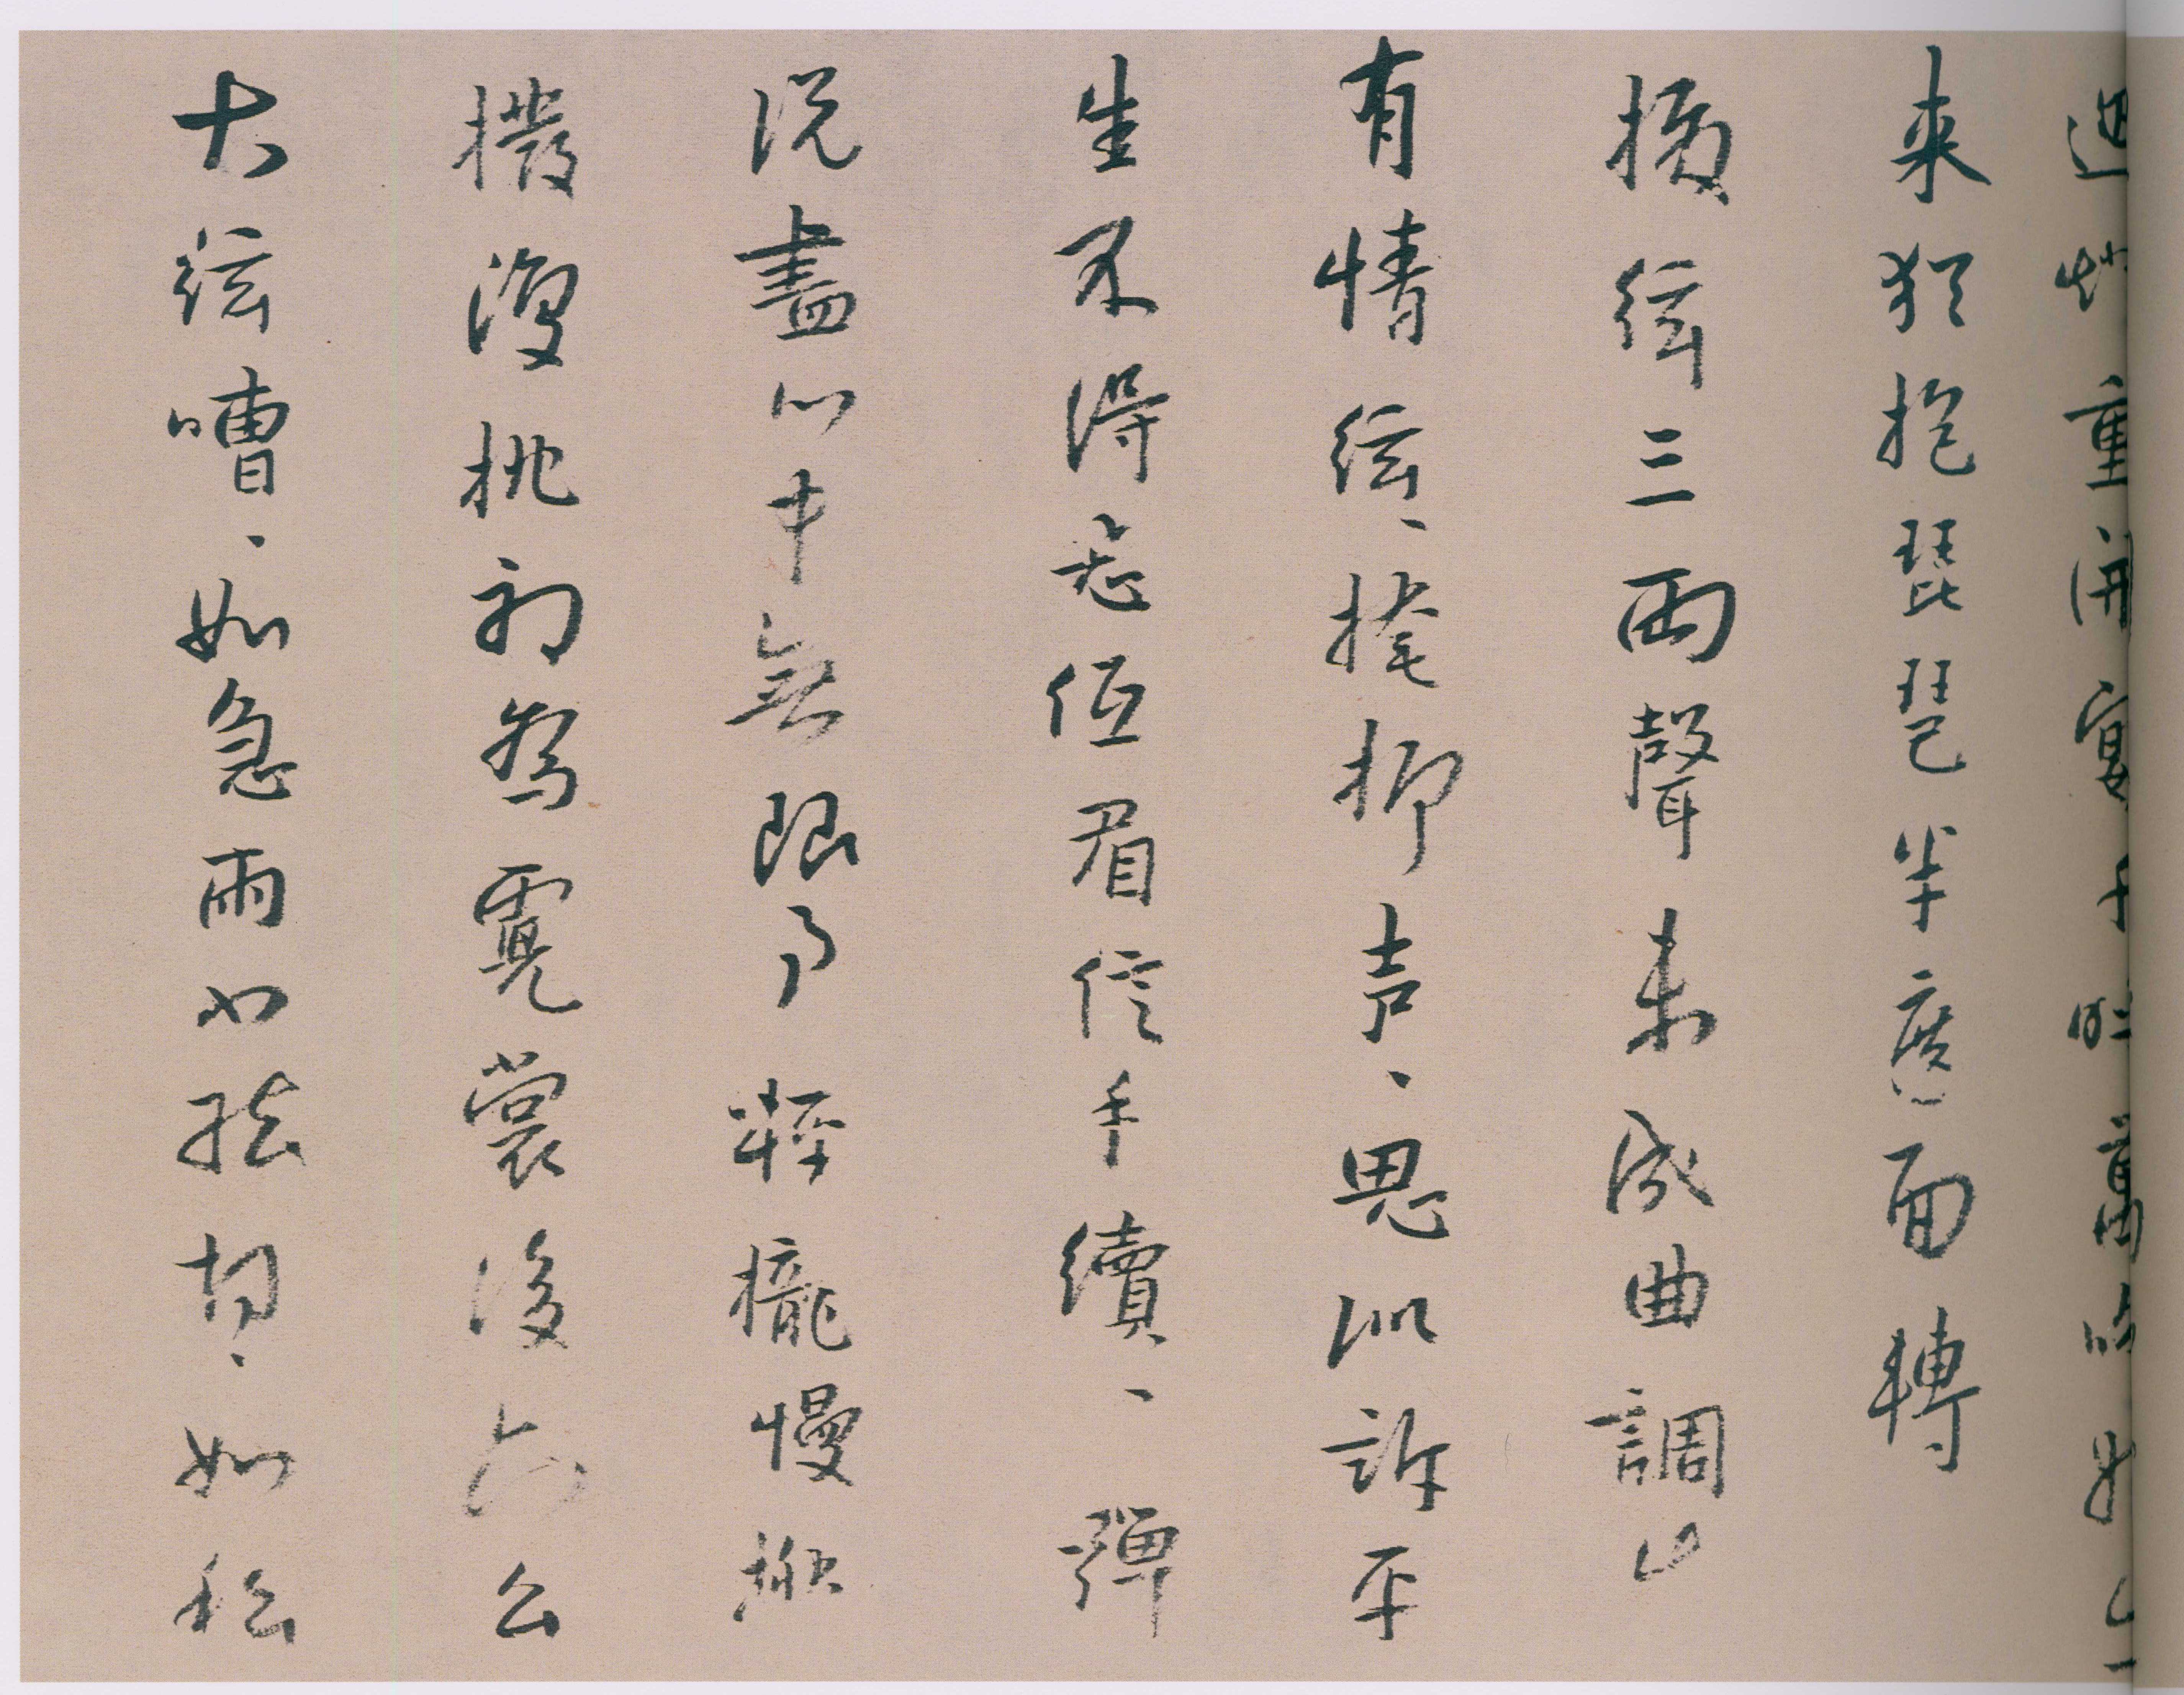 迴燈重開宴千呼萬喚始出
来猶抱琵琶半遮面轉
撥絃三兩聲未成曲調先
有情絃、掩抑声、思似訴平
生不得志低眉信手續、彈
説盡心中無限事輕攏慢撚
撥復挑初為霓裳後六么
大絃嘈、如急雨小絃切、如私